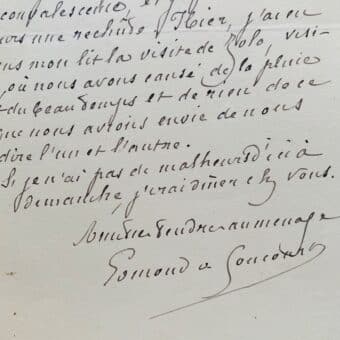 convalescence, et
une rechûte. Hier, j'ai eu
dans mon lit la visite de Zola, visi-
où nous avons causé de la pluie
et du beau temps et de rien de ce
que nous avions envie de nous
dire l'un et l'autre.
Si je n'ai pas de malheurs d'ici à
dimanche, j'irai dîner chez vous.
Amitié tendre au ménage
Edmond de Goncourt